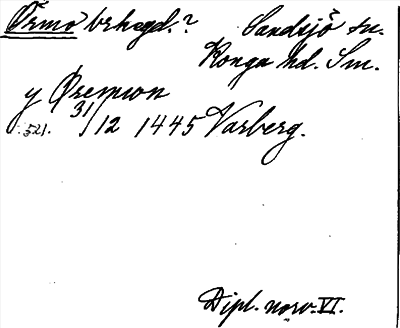 Örmo brhegd.? Sandsjö sn.
Konga hd. Sm.
y Øremoon
521. 31/12 1445 Varberg.
Dipl. norv. VI.